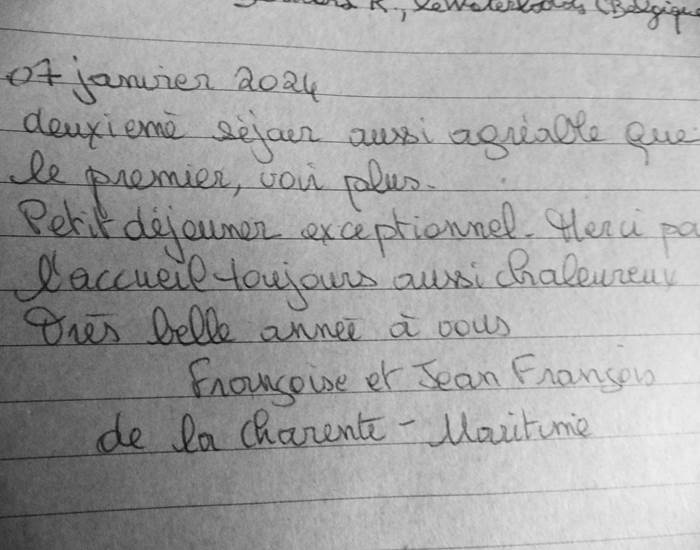 K., (Belgique
07 janvier 2024
deuxiemè séjour aussi agréable que
le premier, voir plus.
Petit déjeuner exceptionnel. Merci po
l'accueil toujours aussi chaleureux
Très belle anneè à vous
Françoise et Jean François
de la Charente - Maritime